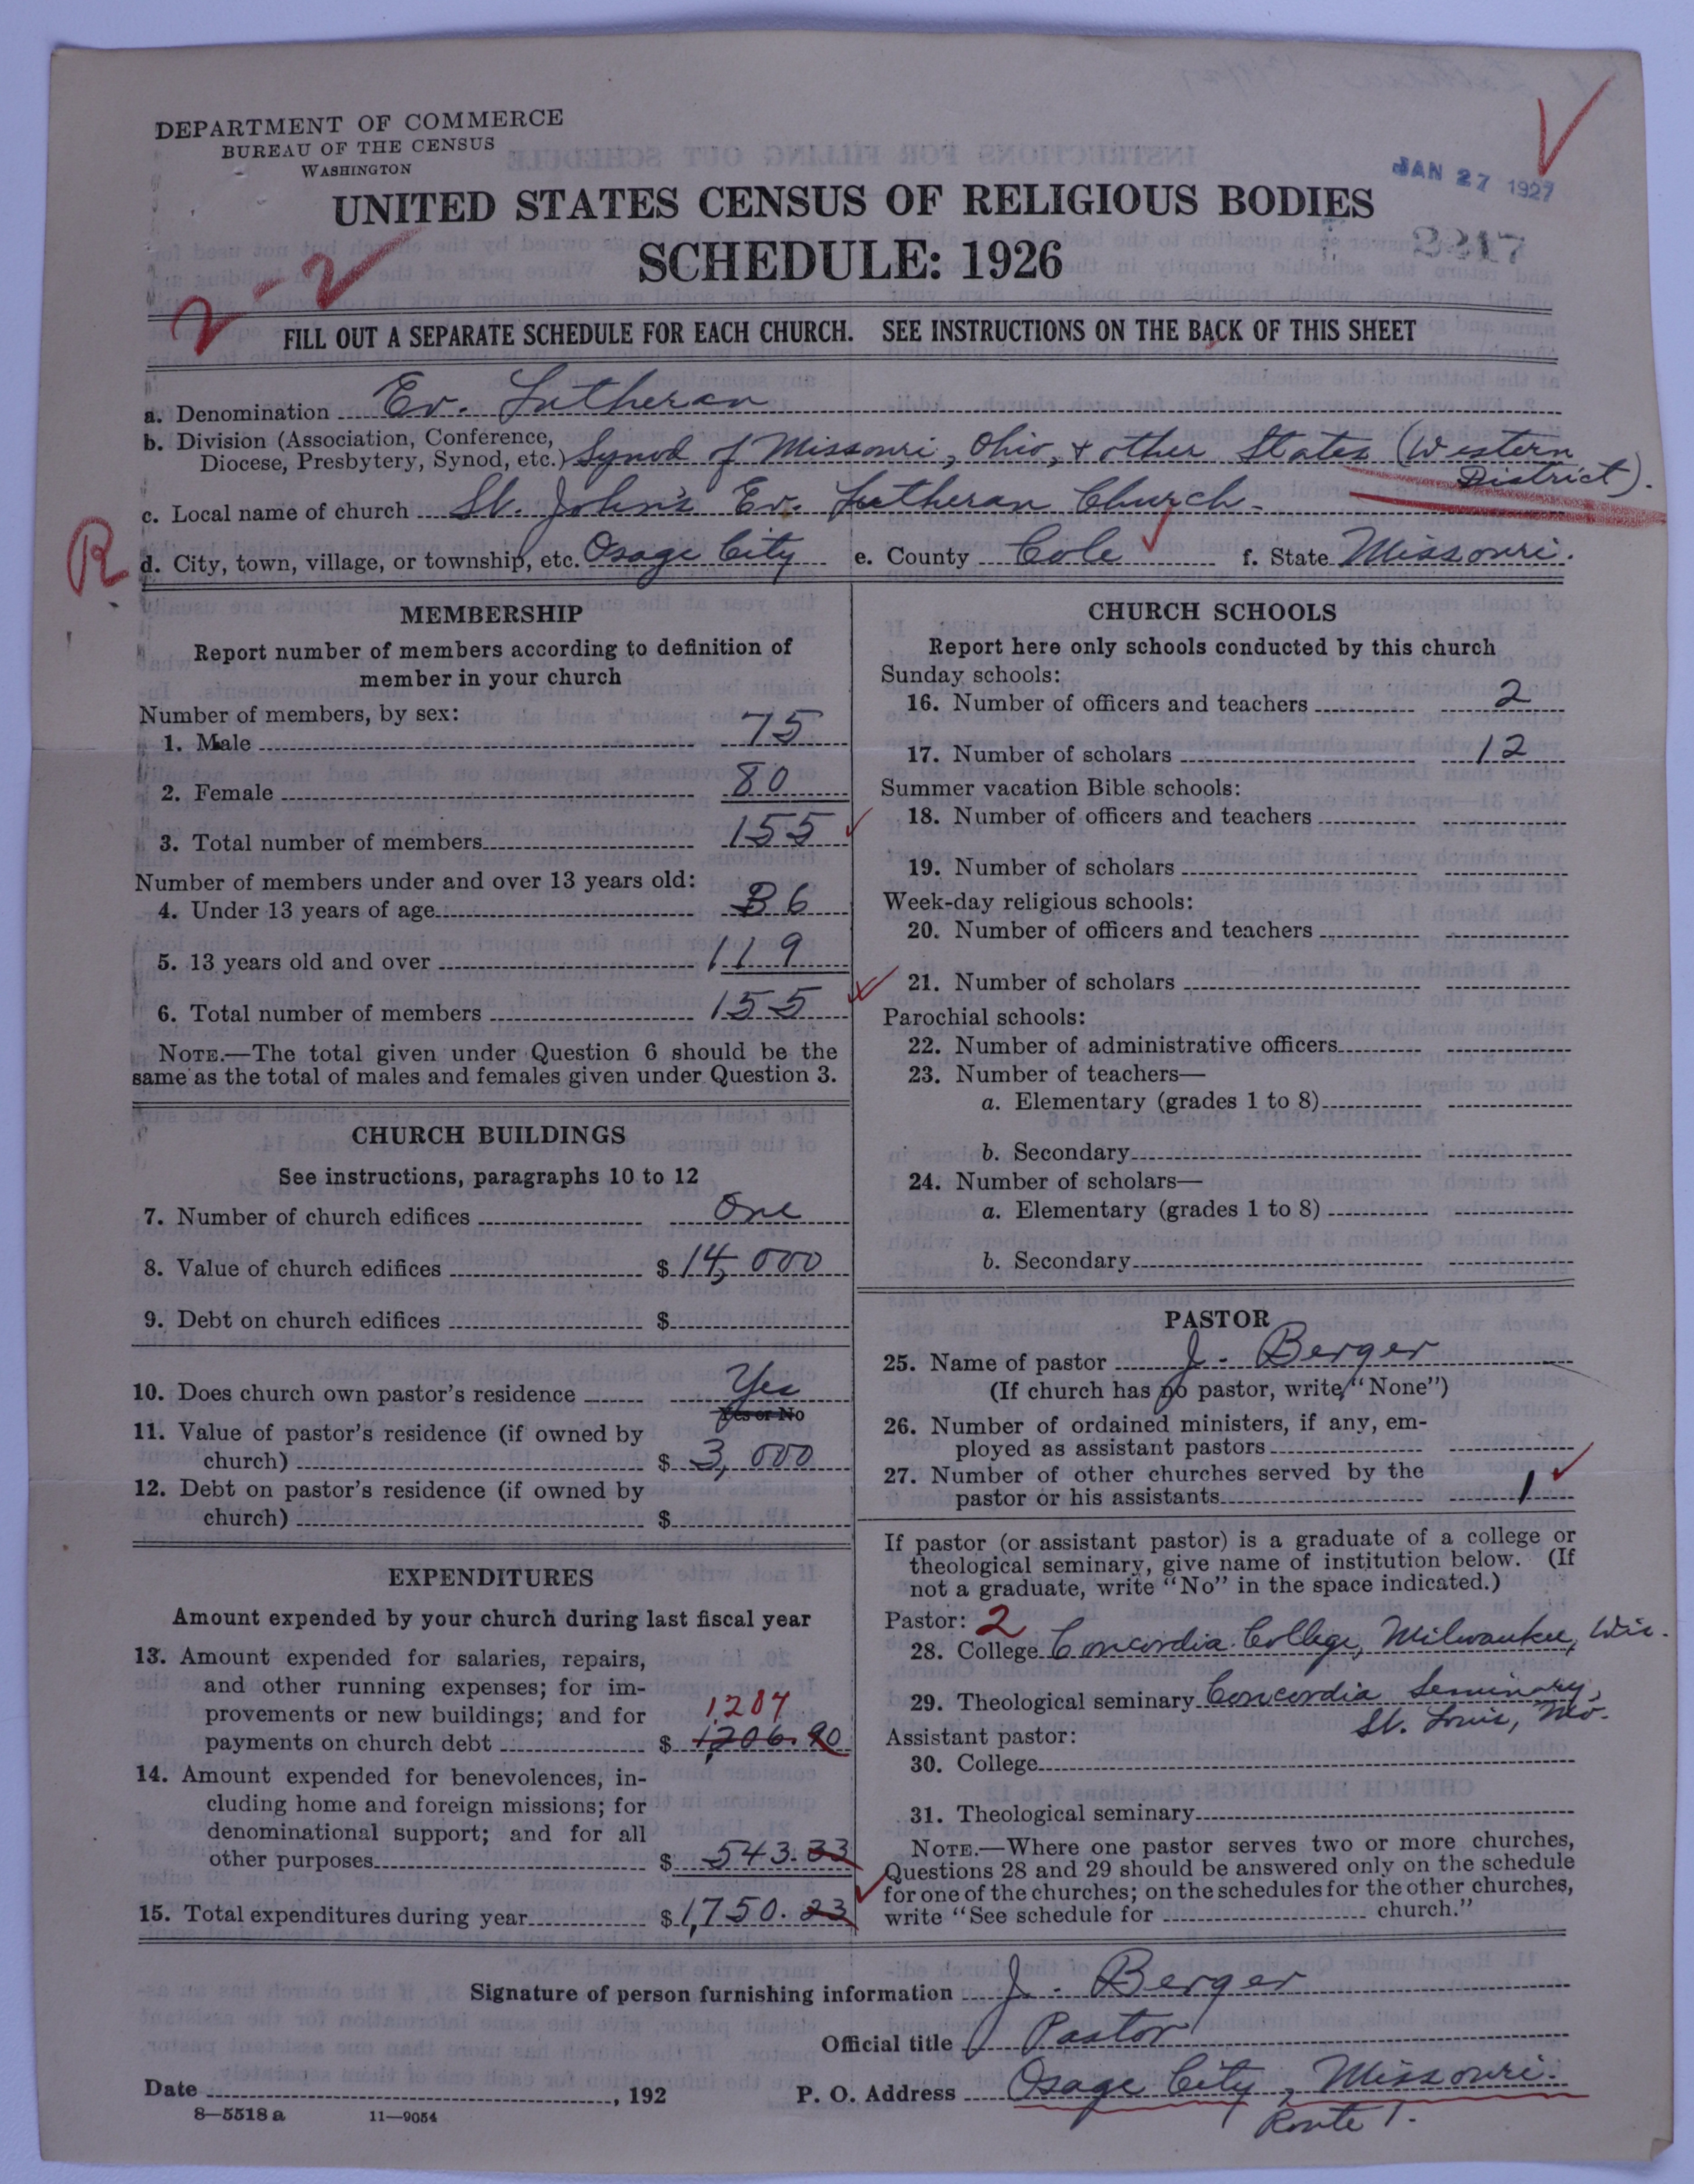 DEPARTMENT OF COMMERCE
BUREAU OF THE CENSUS
WASHINGTON
JAN 27 1927
UNITED STATES CENSUS OF RELIGIOUS BODIES
SCHEDULE: 1926
2-2
FILL OUT A SEPARATE SCHEDULE FOR EACH CHURCH. SEE INSTRUCTIONS ON THE BACK OF THIS SHEET
a. Denomination Ev. Lutheran
b. Division (Association, Conference,
Diocese, Presbytery, Synod, etc.) Synod of Missouri, Ohio, & other States (Western
District).
c. Local name of church St. John's Ev. Lutheran Church.
R
d. City, town, village, or township, etc. Osage City e. County Cole f. State Missouri.
MEMBERSHIP
Report number of members according to definition of
member in your church
Number of members, by sex:
1. Male 75
2. Female 80
3. Total number of members 155
Number of members under and over 13 years old:
4. Under 13 years of age 36
5. 13 years old and over 119
6. Total number of members 155
NOTE.—The total given under Question 6 should be the
same as the total of males and females given under Question 3.
CHURCH BUILDINGS
See instructions, paragraphs 10 to 12
7. Number of church edifices One
8. Value of church edifices $ 14,000
9. Debt on church edifices $
10. Does church own pastor's residence Yes
Yes or No
11. Value of pastor's residence (if owned by
church) $ 3,000
12. Debt on pastor's residence (if owned by
church) $
EXPENDITURES
Amount expended by your church during last fiscal year
13. Amount expended for salaries, repairs,
and other running expenses; for im-
provements or new buildings; and for 1,207
payments on church debt $ 1,206.90
14. Amount expended for benevolences, in-
cluding home and foreign missions; for
denominational support; and for all
other purposes $ 543.33
15. Total expenditures during year $ 1,750.23
CHURCH SCHOOLS
Report here only schools conducted by this church
Sunday schools:
16. Number of officers and teachers 2
17. Number of scholars 12
Summer vacation Bible schools:
18. Number of officers and teachers
19. Number of scholars
Week-day religious schools:
20. Number of officers and teachers
21. Number of scholars
Parochial schools:
22. Number of administrative officers
23. Number of teachers—
a. Elementary (grades 1 to 8)
b. Secondary
24. Number of scholars—
a. Elementary (grades 1 to 8)
b. Secondary
PASTOR
25. Name of pastor J. Berger
(If church has no pastor, write "None")
26. Number of ordained ministers, if any, em-
ployed as assistant pastors
27. Number of other churches served by the
pastor or his assistants 1
If pastor (or assistant pastor) is a graduate of a college or
theological seminary, give name of institution below. (If
not a graduate, write "No" in the space indicated.)
Pastor: 2
28. College Concordia College, Milwaukee, Wis.
29. Theological seminary Concordia Seminary,
St. Louis, Mo.
Assistant pastor:
30. College
31. Theological seminary
NOTE.—Where one pastor serves two or more churches,
Questions 28 and 29 should be answered only on the schedule
for one of the churches; on the schedules for the other churches,
write "See schedule for church."
Signature of person furnishing information J. Berger
Official title Pastor
Date , 192 P. O. Address Osage City, Missouri.
Route 1.
8—5518a 11—9054